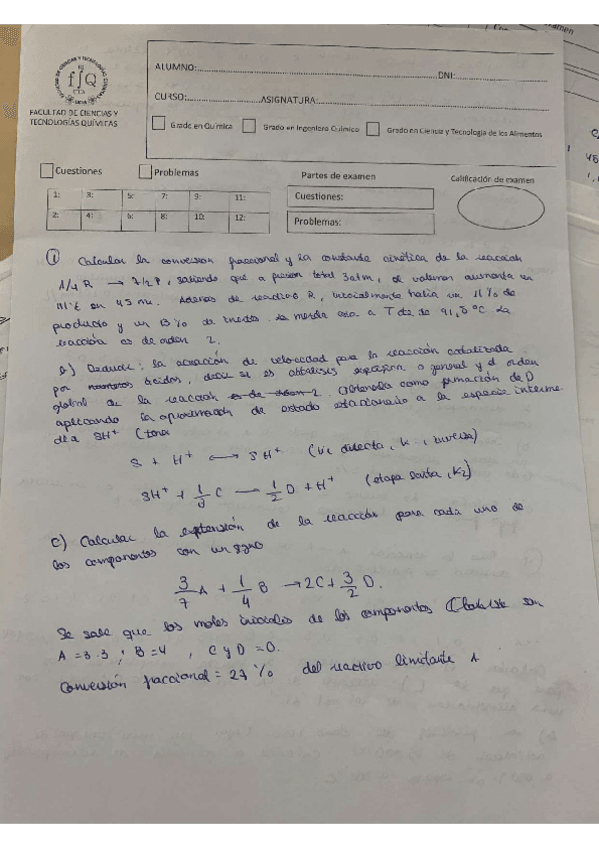 ALUMNO: DNI:
CURSO: ASIGNATURA:
FACULTAD DE CIENCIAS Y
TECNOLOGÍAS QUÍMICAS
Grado en Química Grado en Ingeniería Química Grado en Ciencia y Tecnología de los Alimentos
Cuestiones Problemas Partes de examen Calificación de examen
1: 3: 5: 7: 9: 11:
2: 4: 6: 8: 10: 12:
Cuestiones:
Problemas:
① Calcular la conversion fraccional y la constante cinética de la reacción
1/4 R → 7/2 P, sabiendo que a presion total 3 atm, el volumen aumenta un
11% en 45 min. Ademas de reactivo R, inicialmente había un 11% de
producto y un 13% de inertes. Se media esa a T de 91,5ºC. La
reacción es de orden 2.
b) Deducir: la ecuación de velocidad para la reacción catalizada
por ácidos, decir si es catálisis especifica o general y el orden
global de la reacción. Obtenerla como formación de D
aplicando la aproximación de estado estacionario a la especie interme
dia SH⁺
S + H⁺ ⟷ SH⁺ (k₁ directa, k₋₁ inversa)
SH⁺ + 1/3 C → 1/2 D + H⁺ (etapa lenta, k₂)
c) Calcular la extensión de la reacción para cada uno de
los componentes con un signo
3/7 A + 1/4 B → 2C + 3/2 D.
Se sabe que los moles iniciales de los componentes son
A = 3.3 ; B = 4 , C y D = 0.
Conversión fraccional = 27% del reactivo limitante A